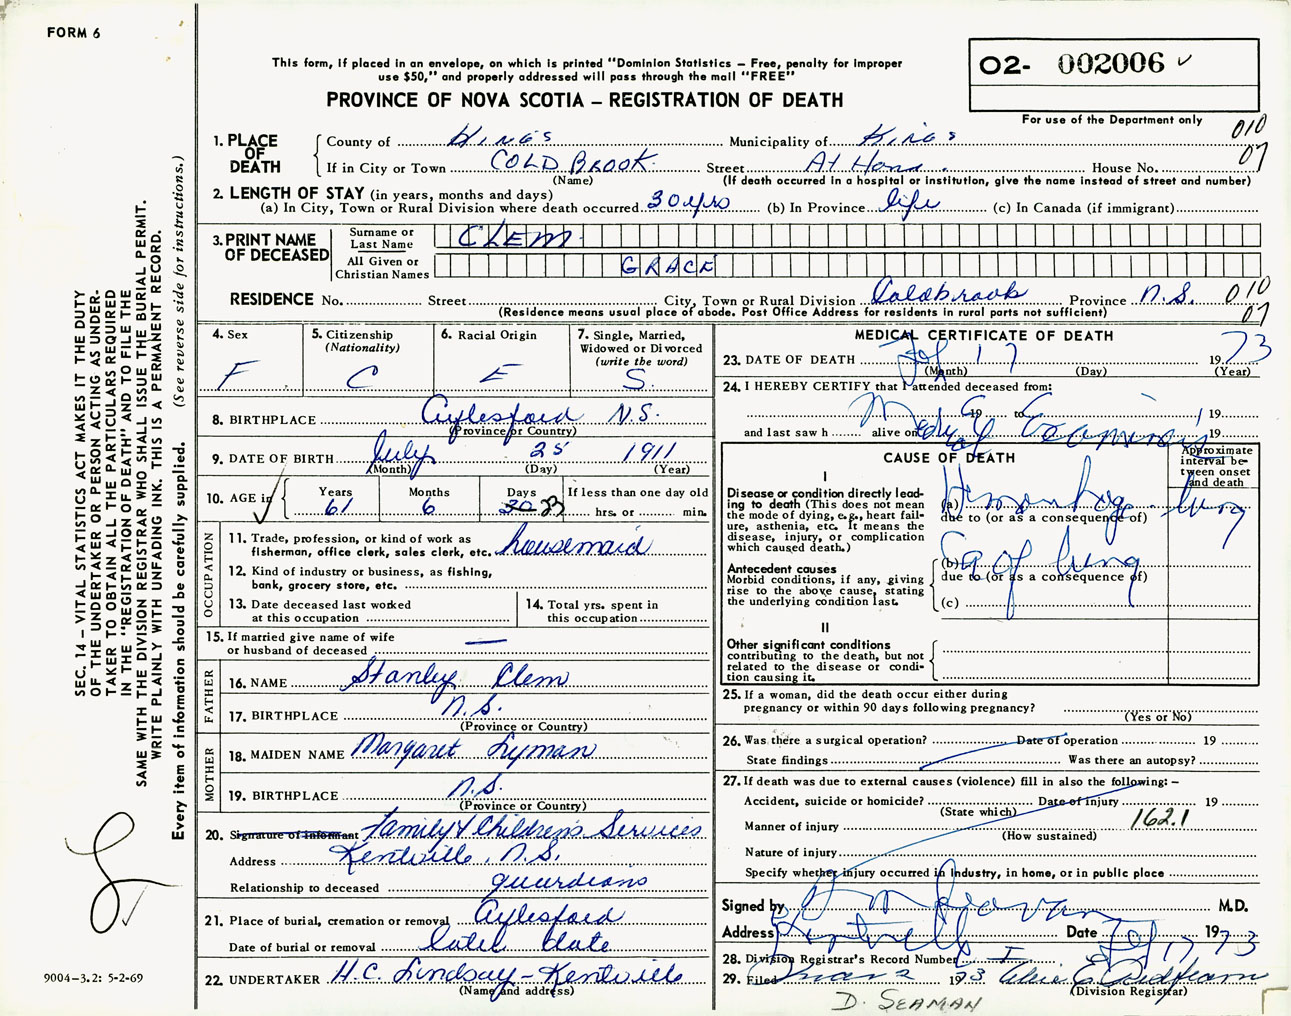 FORM 6
This form, if placed in an envelope, on which is printed "Dominion Statistics – Free, penalty for improper
use $50," and properly addressed will pass through the mail "FREE"
PROVINCE OF NOVA SCOTIA – REGISTRATION OF DEATH
O2- 002006
For use of the Department only
010
07
1. PLACE OF DEATH
County of Kings Municipality of Kings
If in City or Town COLD BROOK Street At Home House No.
(Name) (If death occurred in a hospital or institution, give the name instead of street and number)
2. LENGTH OF STAY (in years, months and days)
(a) In City, Town or Rural Division where death occurred 30 yrs (b) In Province life (c) In Canada (if immigrant)
3. PRINT NAME OF DECEASED
Surname or Last Name CLEM
All Given or Christian Names GRACE
RESIDENCE No. Street City, Town or Rural Division Coldbrook Province N.S. 010
(Residence means usual place of abode. Post Office Address for residents in rural parts not sufficient) 07
4. Sex F
5. Citizenship (Nationality) C
6. Racial Origin E
7. Single, Married, Widowed or Divorced (write the word) S.
8. BIRTHPLACE Aylesford N.S.
(Province or Country)
9. DATE OF BIRTH July 25 1911
(Month) (Day) (Year)
10. AGE in Years 61 Months 6 Days 23 If less than one day old
hrs. or min.
OCCUPATION
11. Trade, profession, or kind of work as
fisherman, office clerk, sales clerk, etc. housemaid
12. Kind of industry or business, as fishing,
bank, grocery store, etc.
13. Date deceased last worked
at this occupation
14. Total yrs. spent in
this occupation
15. If married give name of wife
or husband of deceased —
FATHER
16. NAME Stanley Clem
17. BIRTHPLACE N.S.
(Province or Country)
MOTHER
18. MAIDEN NAME Margaret Lyman
19. BIRTHPLACE N.S.
(Province or Country)
20. Signature of informant Family & Children's Services
Address Kentville, N.S.
Relationship to deceased guardians
21. Place of burial, cremation or removal Aylesford
Date of burial or removal later date
22. UNDERTAKER H.C. Lindsay - Kentville
(Name and address)
MEDICAL CERTIFICATE OF DEATH
23. DATE OF DEATH Feb 17 1973
(Month) (Day) (Year)
24. I HEREBY CERTIFY that I attended deceased from:
19 to 19
and last saw h alive on 19
CAUSE OF DEATH
Approximate interval between onset and death
I
Disease or condition directly lead-
ing to death (This does not mean
the mode of dying, e.g., heart fail-
ure, asthenia, etc. It means the
disease, injury, or complication
which caused death.)
(a) Hemorrhage - lung
due to (or as a consequence of)
Antecedent causes
Morbid conditions, if any, giving
rise to the above cause, stating
the underlying condition last.
(b) Ca of lung
due to (or as a consequence of)
(c)
II
Other significant conditions
contributing to the death, but not
related to the disease or condi-
tion causing it.
25. If a woman, did the death occur either during
pregnancy or within 90 days following pregnancy?
(Yes or No)
26. Was there a surgical operation? Date of operation 19
State findings Was there an autopsy?
27. If death was due to external causes (violence) fill in also the following: –
Accident, suicide or homicide? Date of injury 19
(State which)
Manner of injury 162.1
(How sustained)
Nature of injury
Specify whether injury occurred in industry, in home, or in public place
Signed by M.D.
Address Kentville Date Feb 17 1973
28. Division Registrar's Record Number
29. Filed Mar 2 1973
(Division Registrar)
D. SEAMAN
SEC. 14 – VITAL STATISTICS ACT MAKES IT THE DUTY
OF THE UNDERTAKER OR PERSON ACTING AS UNDER-
TAKER TO OBTAIN ALL THE PARTICULARS REQUIRED
IN THE "REGISTRATION OF DEATH" AND TO FILE THE
SAME WITH THE DIVISION REGISTRAR WHO SHALL ISSUE THE BURIAL PERMIT.
WRITE PLAINLY WITH UNFADING INK. THIS IS A PERMANENT RECORD.
Every item of information should be carefully supplied. (See reverse side for instructions.)
9004-3.2: 5-2-69